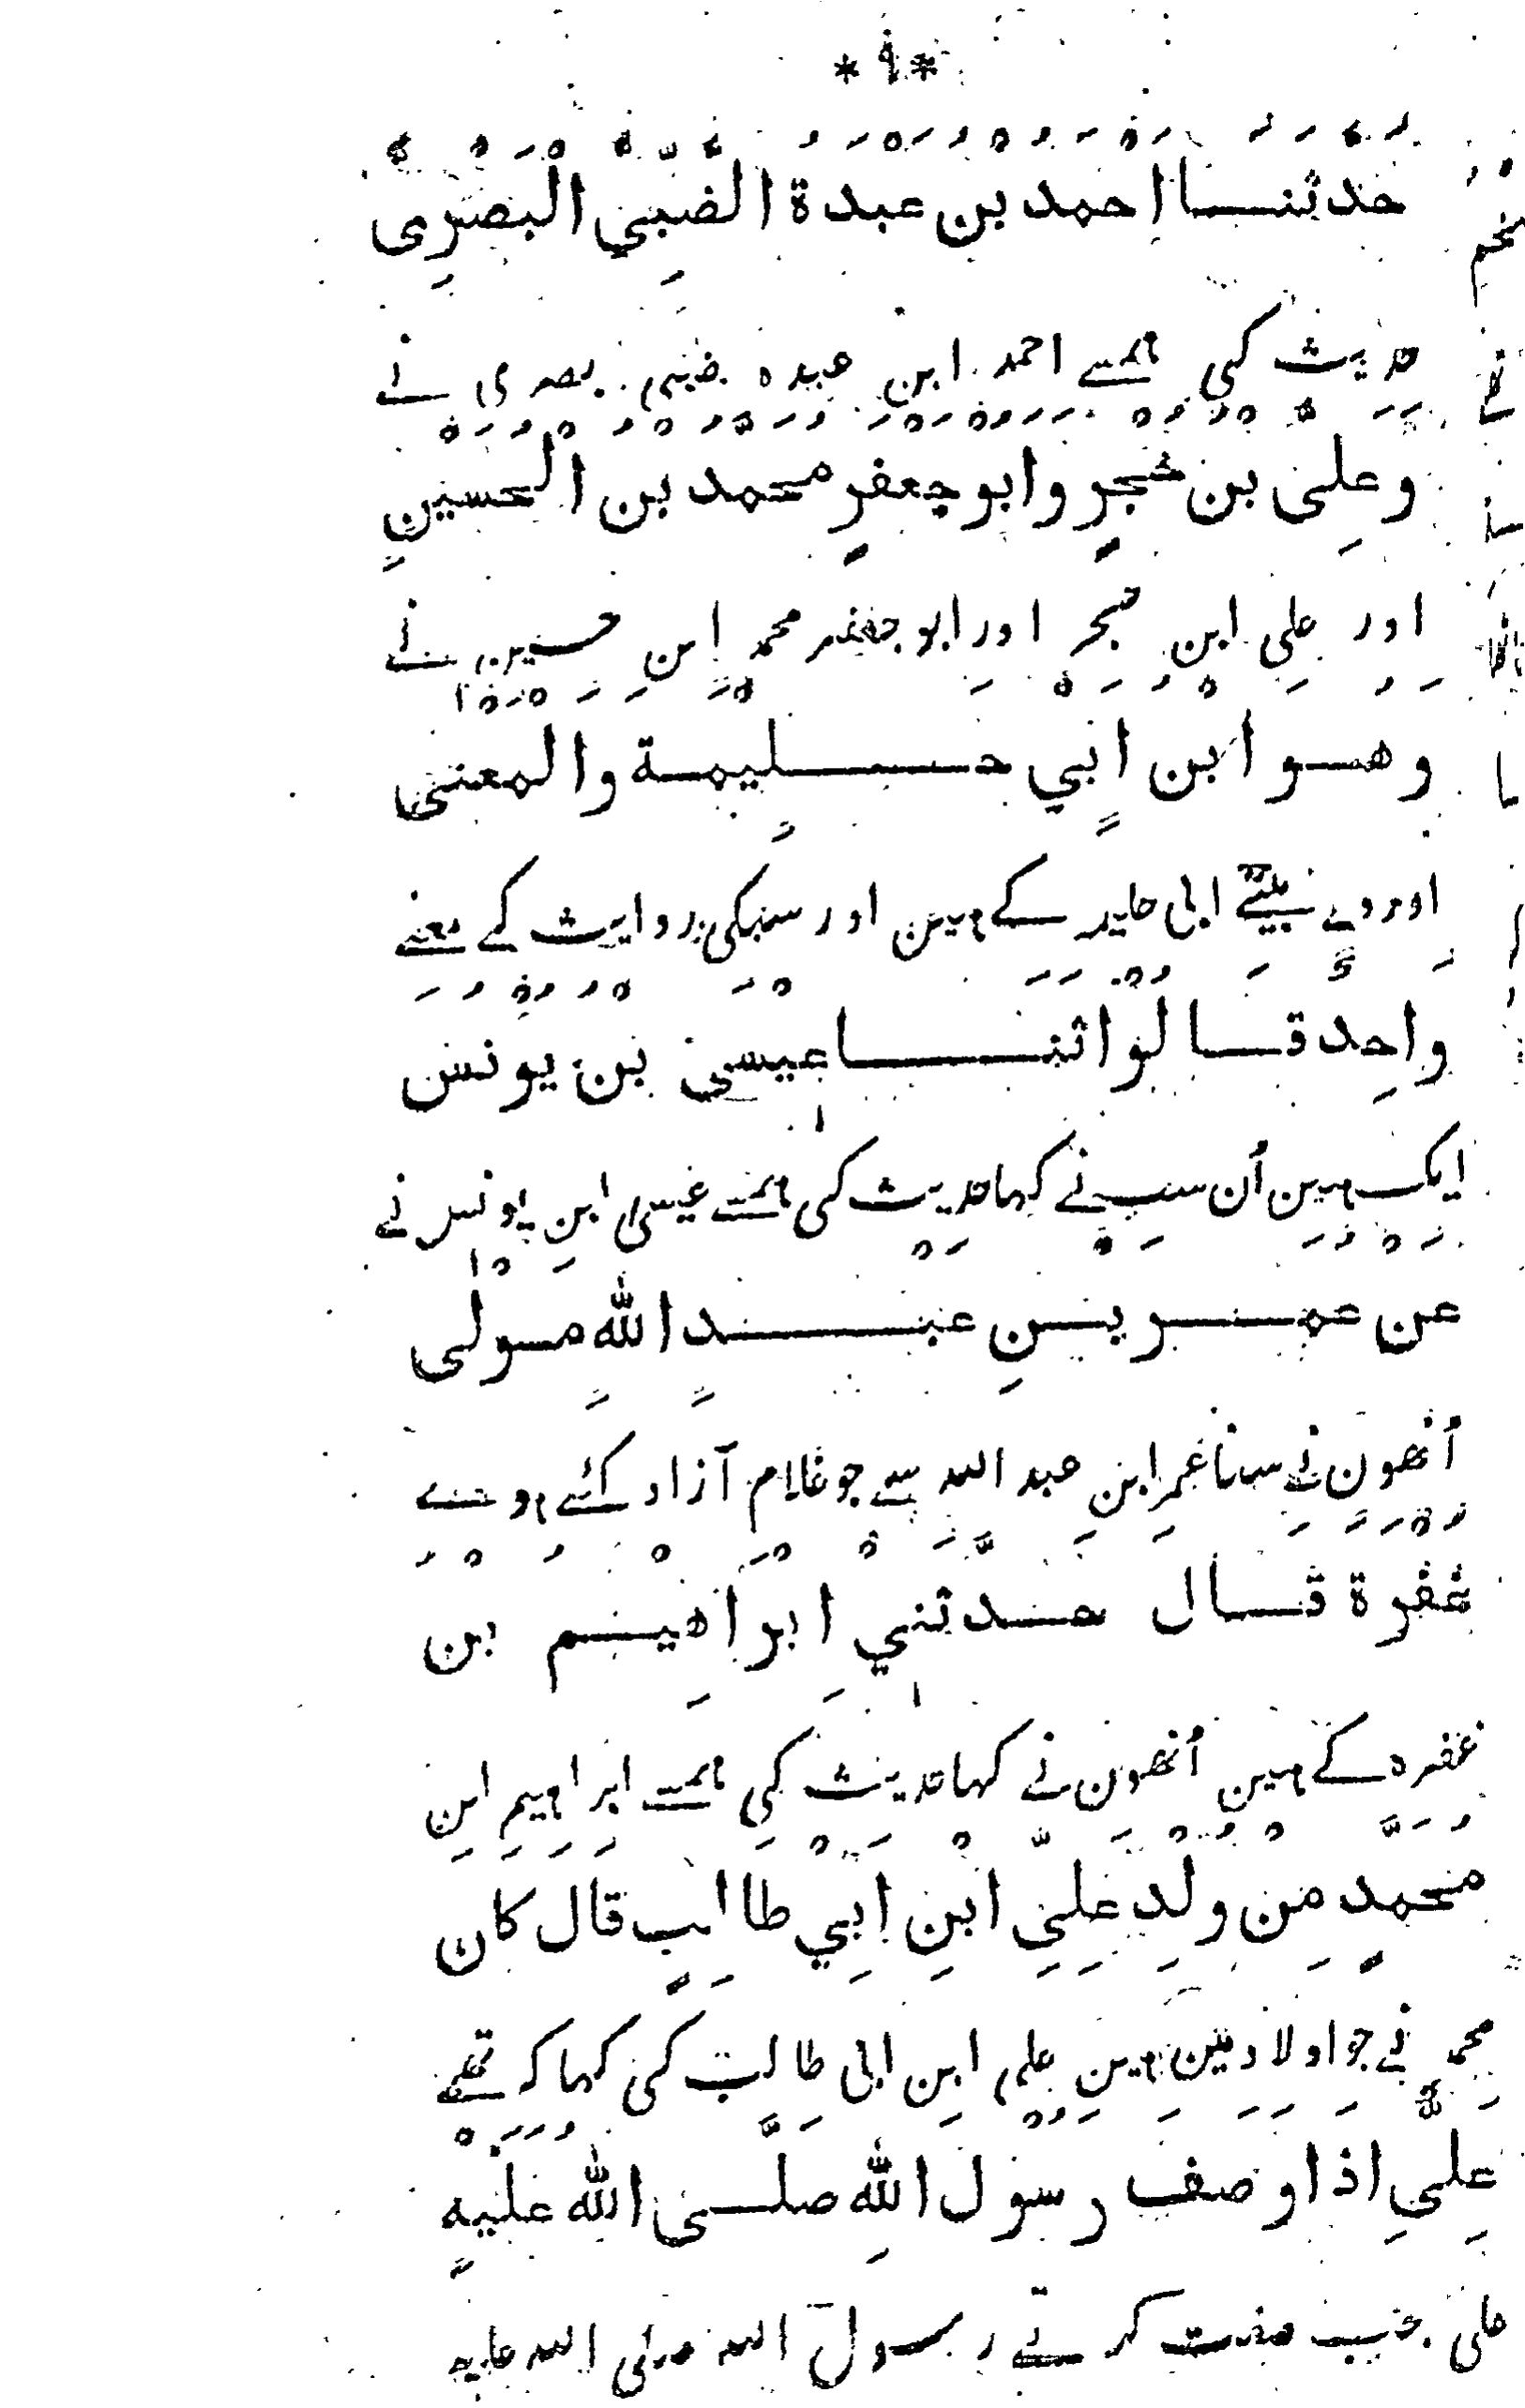 * ٩ *
حدثنا احمد بن عبدة الضَّبِّي الْبَصْرِى
حدیث کی ہمسے احمد ابن عبدہ ضبی بصری نے
وعلى بن حُجْرٍ وابو جعفرٍ محمد بن الْحسينِ
اور علی ابن حجر اور ابو جعفر محمد ابن حسین نے
وهو ابن ابي حليمة والمعنى
اور وے بیٹے ابی حلیمہ کے ہین اور سبکی روایت کے معنے
واحِد قالوا ثنا عيسى بن يونس
ایک ہین اُن سب نے کہا حدیث کی ہمسے عیسی ابن یونس نے
عن عمر بنِ عبد اللهِ مولى
اُنھون نے سنا عمر ابن عبد اللہ سے جو غلام آزاد کئے ہوے
غُفْرة قال حدثني ابراهيم بن
غفرہ کے ہین اُنھون نے کہا حدیث کی ہمسے ابراہیم ابن
محمدٍ مِن ولدِ عليِّ ابنِ ابي طالبٍ قال كان
محمد نے جو اولاد مین ہین علی ابن ابی طالب کی کہا کہ تھے
عليٌّ اذا وصف رسول اللهِ صلى الله عليهِ
علی جب صفت کرتے رسول اللہ صلی اللہ علیہ